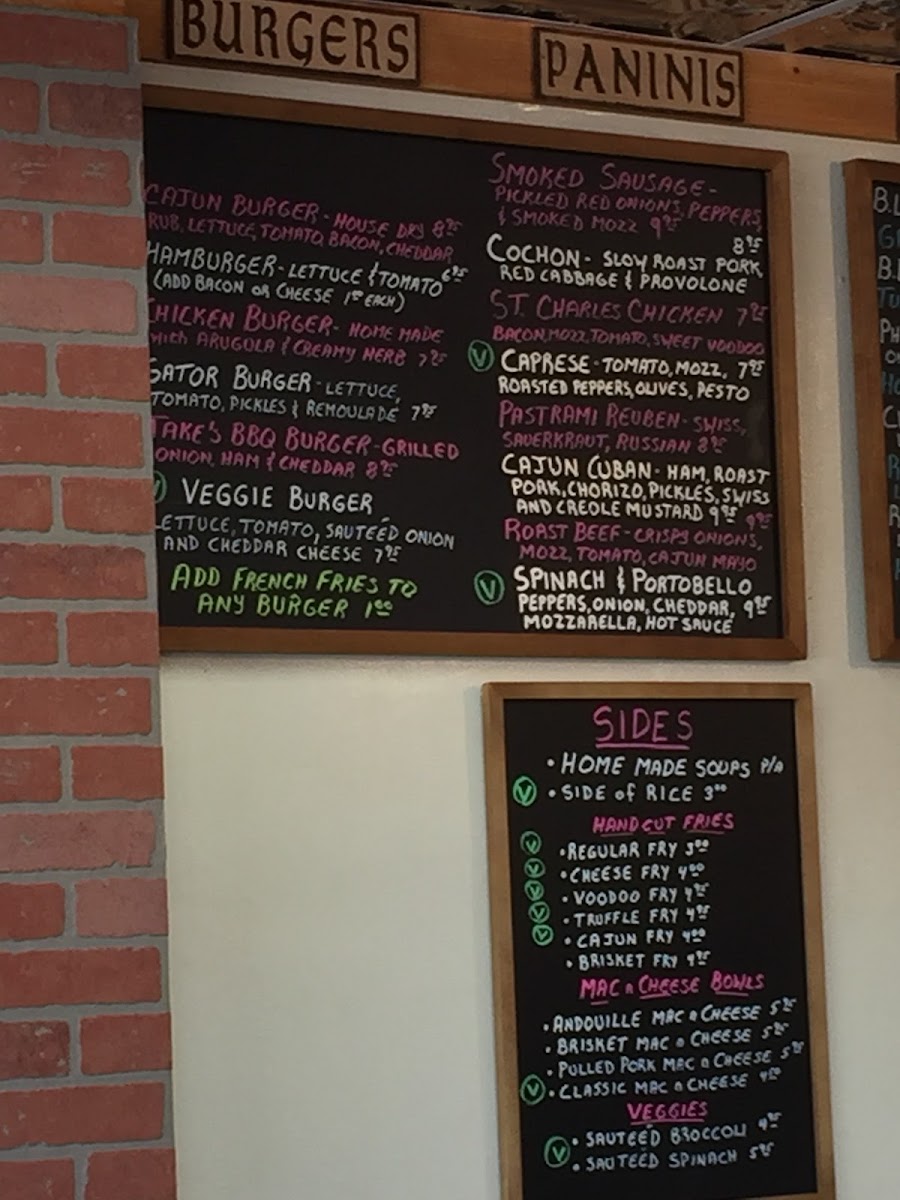 BURGERS
CAJUN BURGER - HOUSE DRY 8.95
RUB, LETTUCE, TOMATO, BACON, CHEDDAR
HAMBURGER - LETTUCE & TOMATO 6.95
(ADD BACON OR CHEESE 1.00 EACH)
CHICKEN BURGER - HOME MADE
with ARUGULA & CREAMY HERB 7.95
GATOR BURGER - LETTUCE,
TOMATO, PICKLES & REMOULADE 7.95
JAKE'S BBQ BURGER - GRILLED
ONION, HAM & CHEDDAR 8.95
V VEGGIE BURGER
LETTUCE, TOMATO, SAUTEÉD ONION
AND CHEDDAR CHEESE 7.95
ADD FRENCH FRIES TO
ANY BURGER 1.00
PANINIS
SMOKED SAUSAGE -
PICKLED RED ONIONS, PEPPERS,
& SMOKED MOZZ 9.95
8.95
COCHON - SLOW ROAST PORK,
RED CABBAGE & PROVOLONE
ST. CHARLES CHICKEN 7.95
BACON, MOZZ, TOMATO, SWEET VOODOO
V CAPRESE - TOMATO, MOZZ, 7.95
ROASTED PEPPERS, OLIVES, PESTO
PASTRAMI REUBEN - SWISS,
SAUERKRAUT, RUSSIAN 8.95
CAJUN CUBAN - HAM, ROAST
PORK, CHORIZO, PICKLES, SWISS
AND CREOLE MUSTARD 9.95
9.95
ROAST BEEF - CRISPY ONIONS,
MOZZ, TOMATO, CAJUN MAYO
V SPINACH & PORTOBELLO
PEPPERS, ONION, CHEDDAR, 9.95
MOZZARELLA, HOT SAUCE
SIDES
• HOME MADE SOUPS P/A
V • SIDE of RICE 3.00
HAND CUT FRIES
V • REGULAR FRY 3.00
V • CHEESE FRY 4.00
V • VOODOO FRY 4.95
V • TRUFFLE FRY 4.95
V • CAJUN FRY 4.00
• BRISKET FRY
MAC n CHEESE BOWLS
• ANDOUILLE MAC n CHEESE 5.95
• BRISKET MAC n CHEESE 5.95
• PULLED PORK MAC n CHEESE 5.95
V • CLASSIC MAC n CHEESE
VEGGIES
V • SAUTEÉD BROCCOLI 4.95
• SAUTEÉD SPINACH 5.95